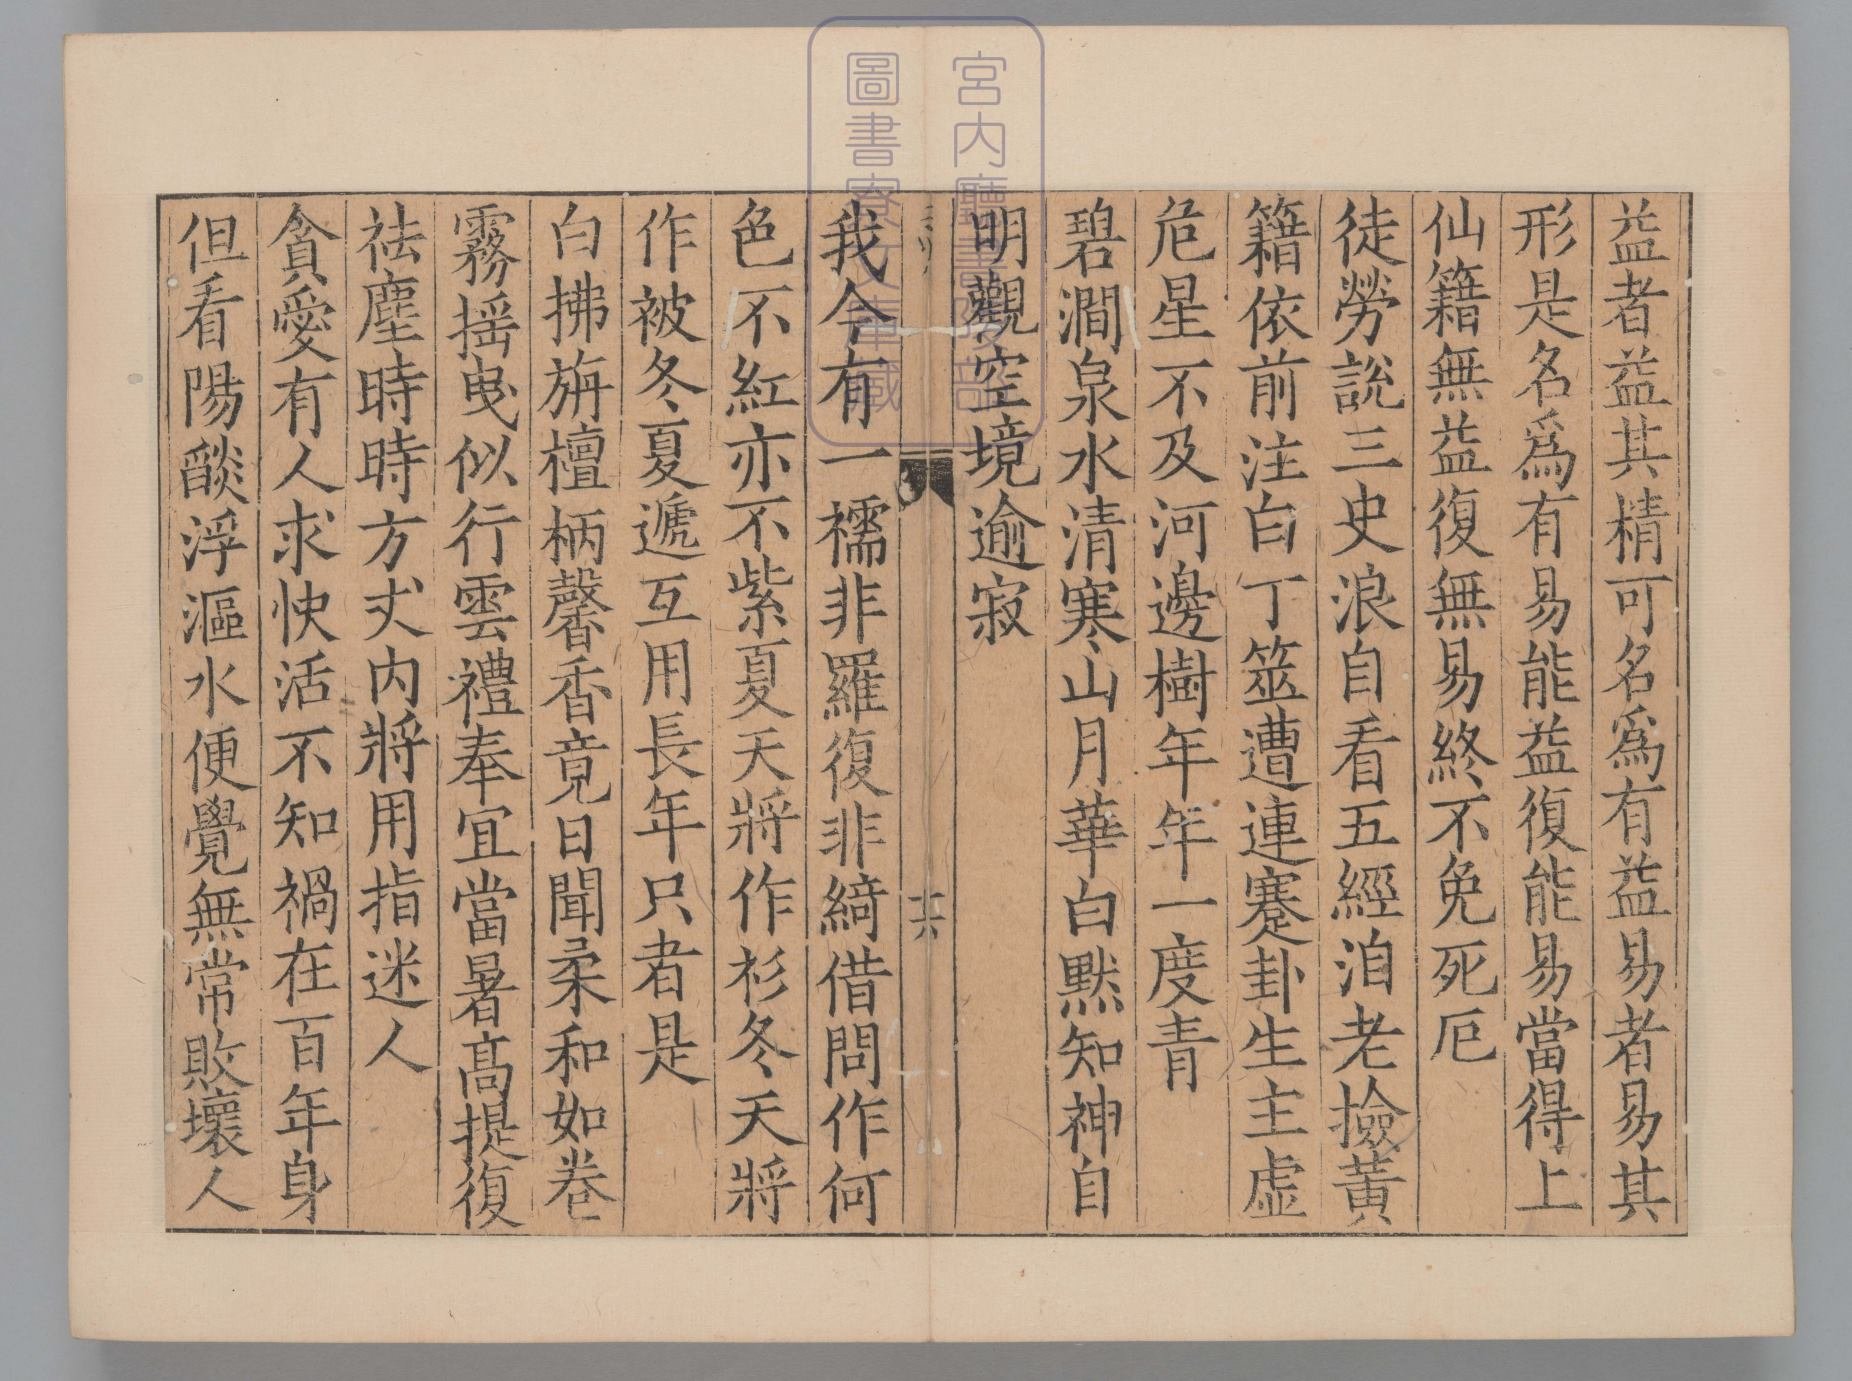 益者益其精可名爲有益易者易其
形是名爲有易能益復能易當得上
仙籍無益復無易終不免死厄
徒勞說三史浪自看五經洎老撿黃
籍依前注白丁筮遭連蹇卦生主虛
危星不及河邊樹年年一度青
碧澗泉水清寒山月華白默知神自
明觀空境逾寂
十六
我今有一襦非羅復非綺借問作何
色不紅亦不紫夏天將作衫冬天將
作被冬夏遞互用長年只者是
白拂旃檀柄馨香竟日聞柔和如卷
霧揺曳似行雲禮奉宜當暑髙提復
祛塵時時方丈内將用指迷人
貪愛有人求快活不知禍在百年身
但看陽燄浮漚水便覺無常敗壞人
宮内廳書陵部
圖書寮文庫藏